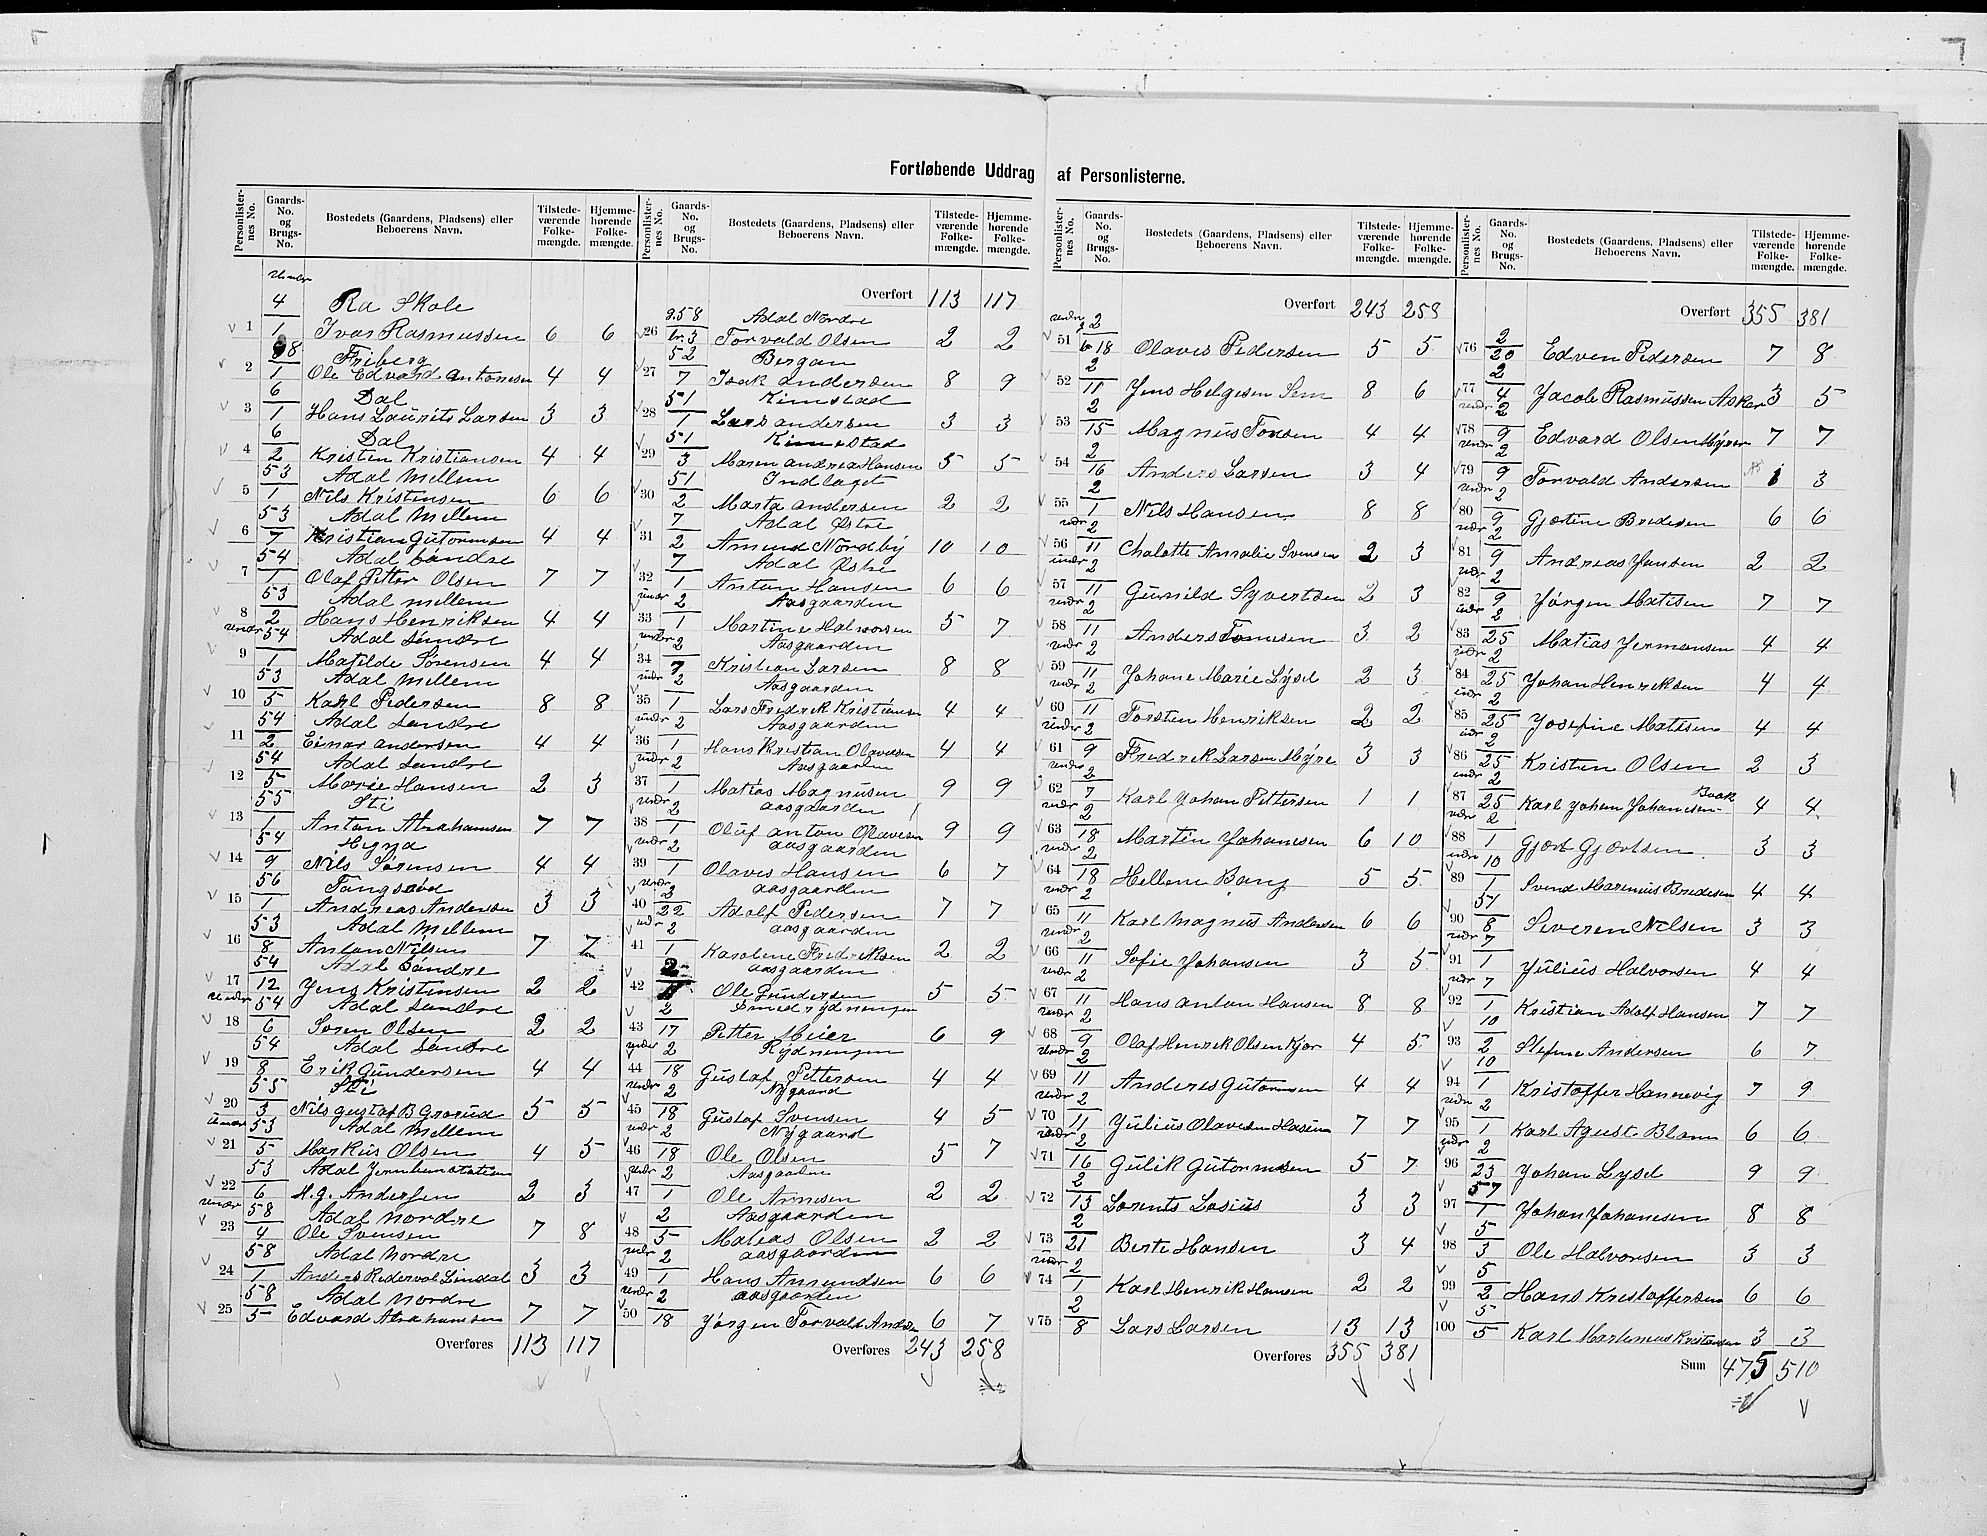 Fortløbende Uddrag af Personlisterne.
Personlister-nes No. Gaards-No. og Brugs-No. Bostedets (Gaardens, Pladsens) eller Beboerens Navn. Tilstede-værende Folke-mængde. Hjemme-hørende Folke-mængde.
4 Ra Skole
1 1 Ivar Rasmussen 6 6
8 Friberg
2 1 Ole Edvard Antonsen 4 4
6 Dal
3 1 Hans Laurits Larsen 3 3
6 Dal
4 2 Kristen Kristiansen 4 4
53 Adal Mellem
5 1 Nils Kristensen 6 6
53 Adal Mellem
6 7 Kristian Gutormsen 4 4
54 Adal Søndre
7 1 Olaf Petter Olsen 7 7
53 Adal Mellem
8 2 Hans Henriksen 4 4
54 Adal Søndre
9 1 Matilde Sørensen 4 4
53 Adal Mellem
10 5 Karl Pedersen 8 8
54 Adal Søndre
11 2 Einar Andersen 4 4
54 Adal Søndre
12 5 Marie Hansen 2 3
55 Sti
13 1 Anton Abrahamsen 7 7
54
14 9 Nils Sørensen 4 4
56
15 1 Andreas Andersen 3 3
53 Adal Mellem
16 8 Anton Nilsen 7 7
54 Adal Søndre
17 12 Jens Kristensen 2 2
54 Adal Søndre
18 6 Søren Olsen 2 2
54 Adal Søndre
19 8 Erik Gundersen 4 4
55 Sti
20 3 Nils Gustaf B Grorud 5 5
53 Adal Mellem
21 5 Markus Olsen 4 5
53 Adal Jernbanstation
22 6 H. G. Andersen 2 3
58 Adal Nordre
23 4 Ole Svensen 7 8
58 Adal Nordre
24 1 Anders Lindal 3 3
58 Adal Nordre
25 5 Edvard Abrahamsen 7 7
Overføres 113 117
Personlister-nes No. Gaards-No. og Brugs-No. Bostedets (Gaardens, Pladsens) eller Beboerens Navn. Tilstede-værende Folke-mængde. Hjemme-hørende Folke-mængde.
Overført 113 117
58 Adal Nordre
26 br. 3 Torvald Olsen 2 2
52 Bergan
27 7 Isak Andersen 8 9
51 Kimstad
28 1 Lars Andersen 3 3
51 Kimestad
29 3 Maren Andrea Hansen 5 5
51 Indlaget
30 2 Marta Andersen 2 2
7 Adal Østre
31 2 Amund Nordby 10 10
7 Adal Østre
32 1 Anton Hansen 6 6
2 Aasgaarden
33 1 Martine Halvorsen 5 7
2 Aasgaarden
34 7 Kristian Larsen 8 8
2 Aasgaarden
35 1 Lars Fredrek Kristiansen 4 4
2 Aasgaarden
36 1 Hans Kristian Olavesen 4 4
2 Aasgaarden
37 1 Matias Magnusen 9 9
2 Aasgaarden
38 1 Oluf Anton Olavesen 9 9
2 Aasgaarden
39 1 Olaves Hansen 6 7
2 Aasgaarden
40 22 Adolf Pedersen 7 7
2 Aasgaarden
41 1 Karolene Fredriksen 2 2
2 Aasgaarden
42 Ole Gundersen 5 5
2 Smedrydningen
43 17 Petter Meier 6 9
2 Rydningen
44 18 Gustaf Pettersen 4 4
2 Nygaard
45 18 Gustaf Svensen 4 5
2 Nygaard
46 18 Ole Olsen 5 7
2 Aasgaarden
47 1 Ole Arnesen 2 2
2 Aasgaarden
48 5 Matias Olsen 2 2
2 Aasgaarden
49 1 Hans Amundsen 6 6
2 Aasgaarden
50 18 Jørgen Torvald Anders 6 7
Overføres 243 258
Personlister-nes No. Gaards-No. og Brugs-No. Bostedets (Gaardens, Pladsens) eller Beboerens Navn. Tilstede-værende Folke-mængde. Hjemme-hørende Folke-mængde.
Overført 243 258
2
51 br 18 Olaves Pedersen 5 5
2
52 11 Jens Helgesen Sem 8 6
2
53 15 Magnus Tonsen 4 4
2
54 16 Anders Larsen 3 4
2
55 1 Nils Hansen 8 8
2
56 11 Chalotte Amalie Svensen 2 3
2
57 11 Gunild Syvertsen 2 3
2
58 11 Anders Tomesen 3 2
2
59 11 Johane Marie Lysel 2 3
2
60 11 Torsten Henriksen 2 2
2
61 9 Fredrek Larsen Myre 3 3
2
62 7 Karl Johan Pettersen 1 1
2
63 18 Martin Johansen 6 10
2
64 18 Hellene Bang 5 5
2
65 11 Karl Magnus Andersen 6 6
2
66 11 Sofie Johansen 3 5
2
67 11 Hans Anton Hansen 8 8
2
68 9 Olaf Henrek Olsen Kjær 4 5
2
69 11 Anders Gutormsen 4 4
2
70 11 Julius Olavesen 7 7
2
71 16 Gulik Gutormsen 5 7
2
72 13 Lorents Lasius 3 3
2
73 21 Berte Hansen 3 4
2
74 1 Karl Henrik Hansen 2 2
2
75 8 Lars Larsen 13 13
Overføres 355 381
Personlister-nes No. Gaards-No. og Brugs-No. Bostedets (Gaardens, Pladsens) eller Beboerens Navn. Tilstede-værende Folke-mængde. Hjemme-hørende Folke-mængde.
Overført 355 381
2
76 20 Edven Pedersen 7 8
2
77 4 Jacob Rasmussen Asker 3 5
2
78 9 Edvard Olsen Myrer 7 7
2
79 9 Torvald Andersen 1 3
2
80 9 Gjøtine Bredesen 6 6
2
81 9 Andreas Jansen 2 2
2
82 9 Jørgen Matisen 7 7
2
83 25 Matias Jermansen 4 4
2
84 25 Johan Henriksen 4 4
2
85 25 Josefine Matisen 4 4
2
86 25 Kristen Olsen 2 3
2
87 25 Karl Johan Johannesen Baak 4 4
2
88 1 Gjert Gjertsen 3 3
10
89 1 Svend Marenius Bredesen 4 4
51
90 8 Severen Nelsen 3 3
7
91 1 Julius Halvorsen 4 4
7
92 1 Kristian Adolf Hansen 7 7
10
93 2 Stefine Andersen 6 7
10
94 1 Kristoffer Hannevig 7 9
2
95 1 Karl Agust Blom 6 6
2
96 23 Johan Lysel 9 9
57
97 1 Johan Johannesen 8 8
5
98 3 Ole Halvorsen 3 3
5
99 2 Hans Kristoffersen 6 6
5
100 5 Karl Martenius Kristensen 3 3
Sum 475 510